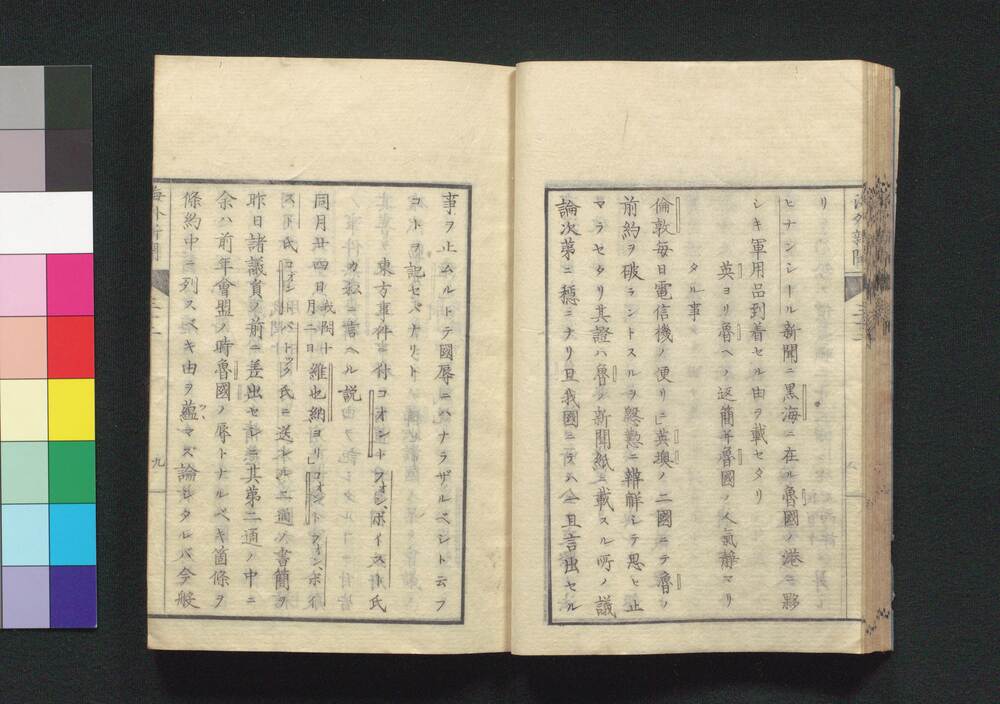 リ
ヒナンシール新聞ニ黒海ニ在ル魯國ノ港ニ夥
シキ軍用品到着セル由ヲ載セタリ
英ヨリ魯ヘノ返簡并魯國ノ人氣靜マリ
タル事
倫敦毎日電信機ノ便リニ英墺ノ二國ニテ魯ノ
前約ヲ破ラントスルヲ慇懃ニ辯解シテ思ヒ止
マラセタリ其證ハ魯ノ新聞紙ニ載スル所ノ議
論次第ニ穩ニナリ且我國ニテハ一旦言出セル
事ヲ止ムルトテ國辱ニハナラザルベシト云フ
コトヲ記セバナリト
東方事件ニ付コオントフォン、ボイスト氏
カ我ニ言ヘル説
同月廿四日我閏十月二日維也納ヨリコオントフォン、ボイ
スト氏コオントベトック氏ニ送レル二通ノ書簡ヲ
昨日諸議員ノ前ニ差出セシニ其第二通ノ中ニ
余ハ前年會盟ノ時魯國ノ辱トナルベキ箇條ヲ
條約中ニ列スベキ由ヲ蘊マズ論シタレバ今般
海外新聞
九